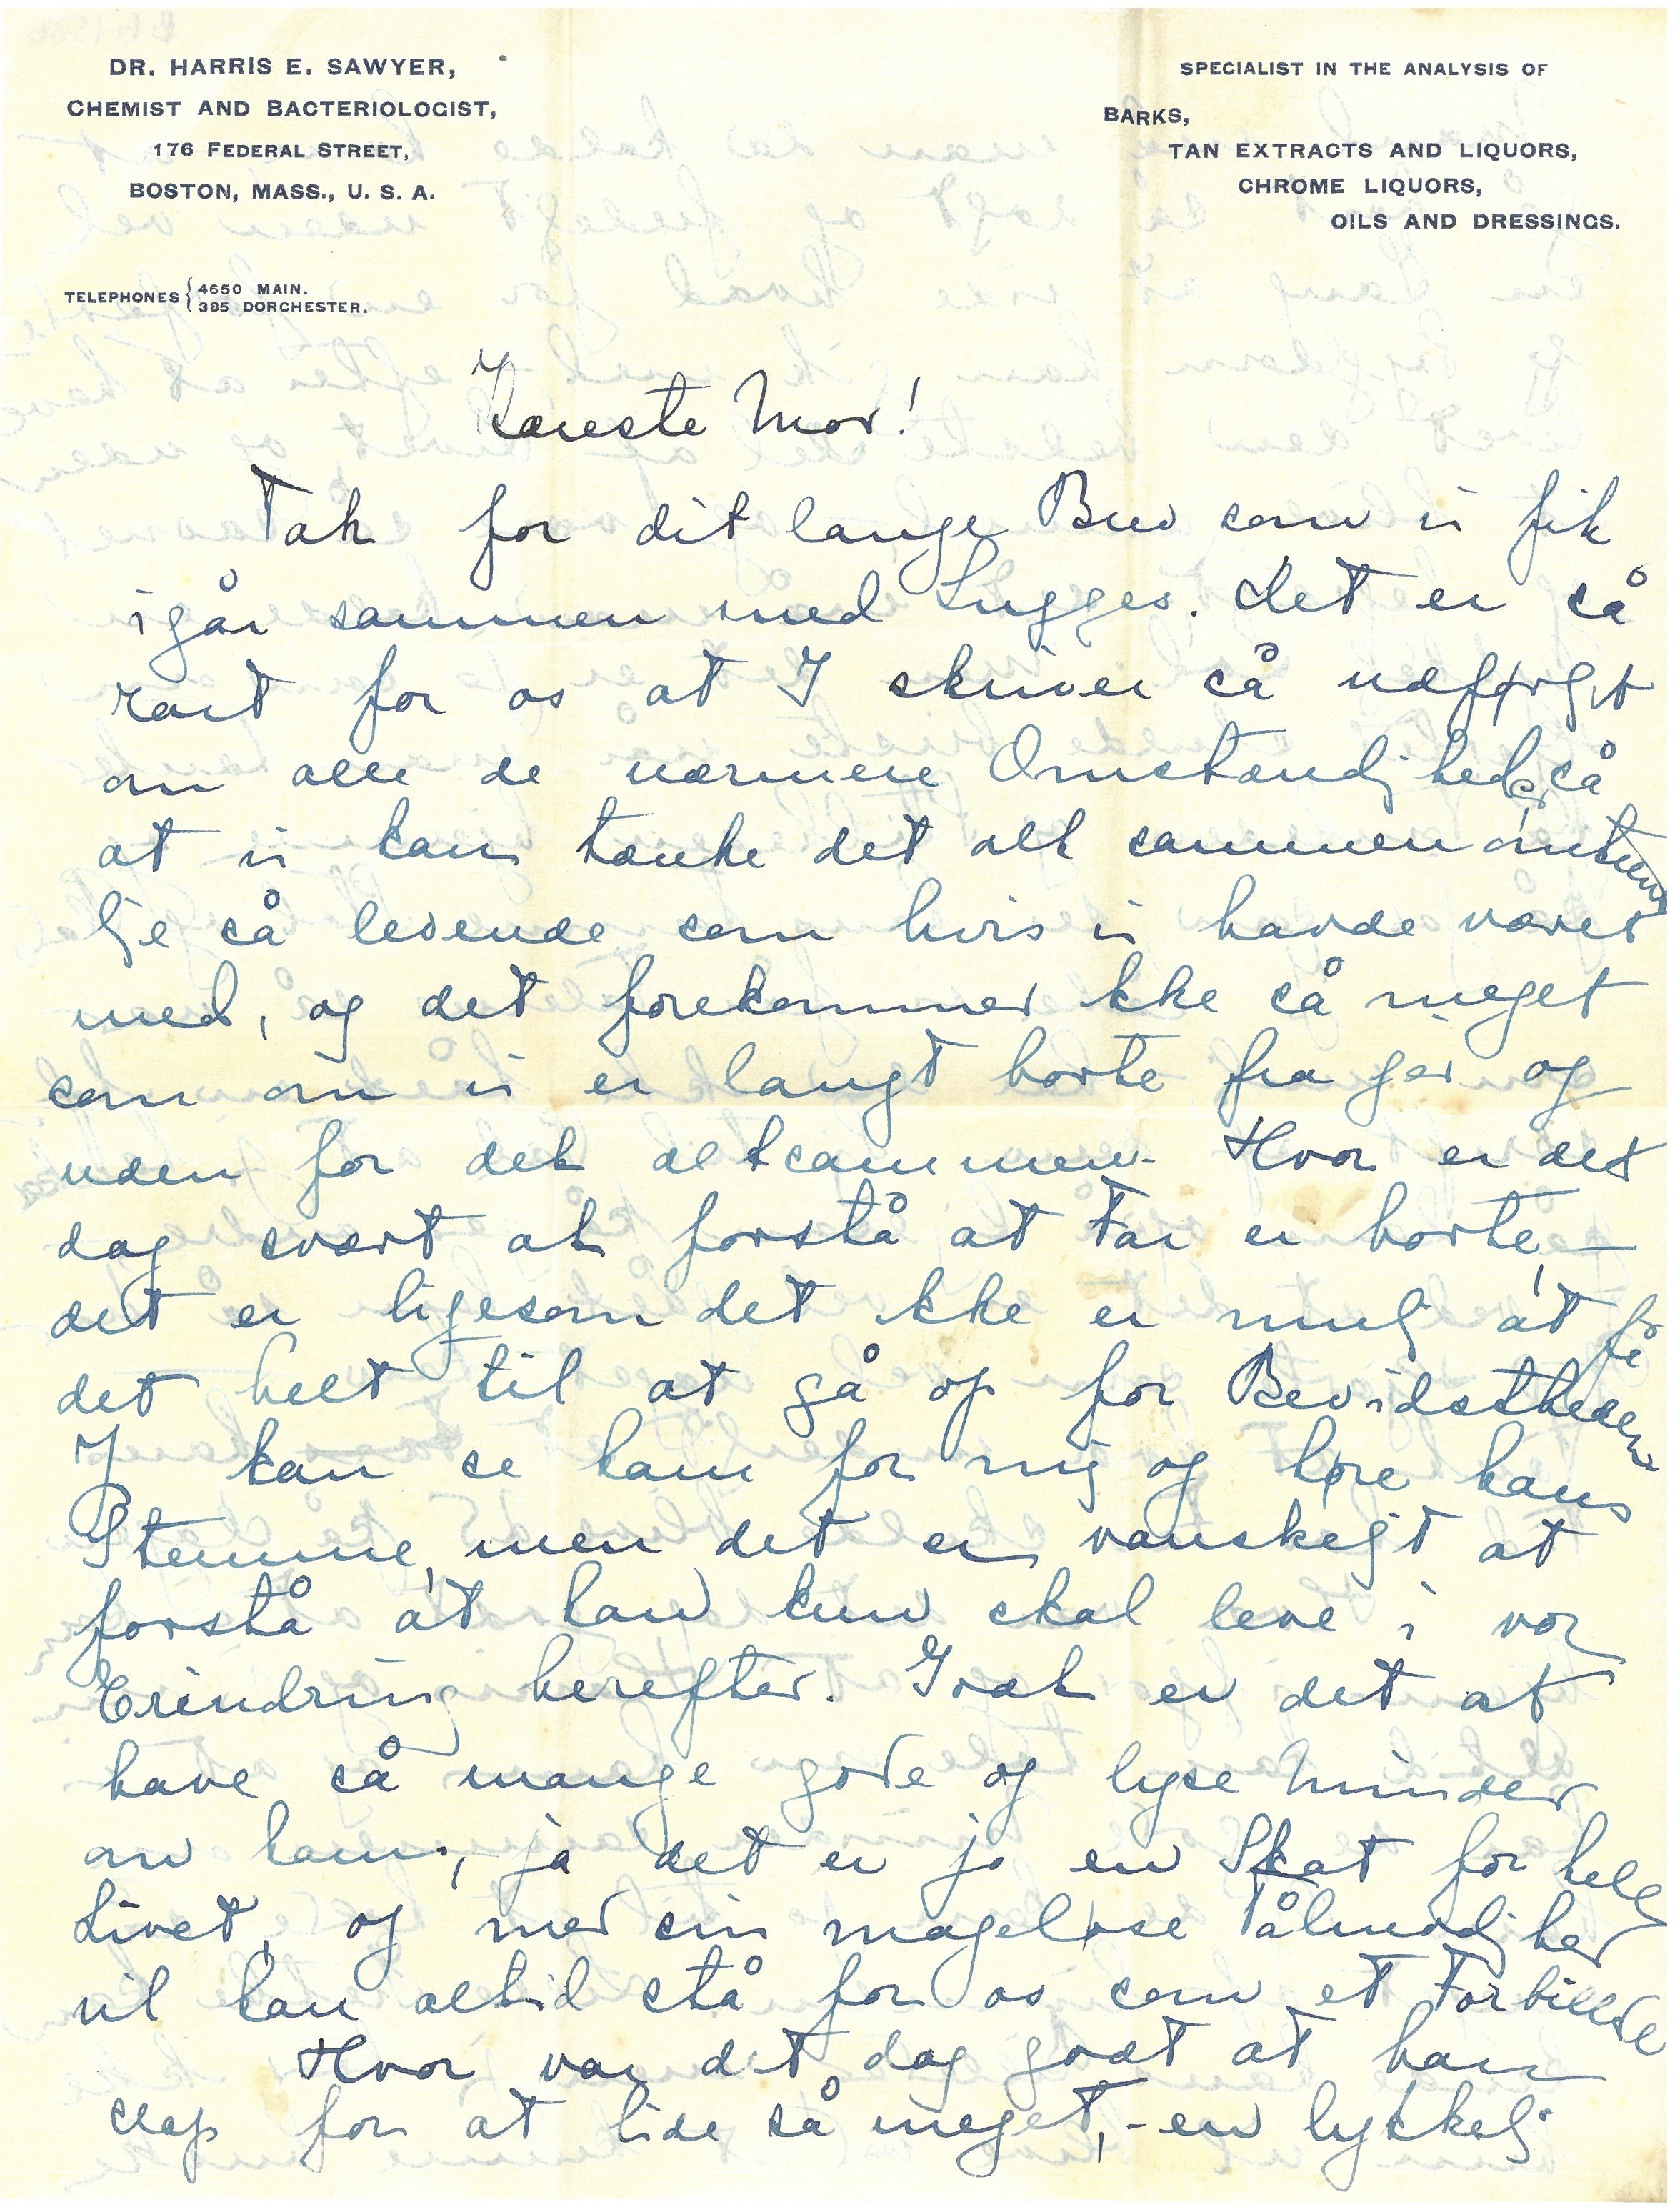 DR. HARRIS E. SAWYER,
CHEMIST AND BACTERIOLOGIST,
176 FEDERAL STREET,
BOSTON, MASS., U. S. A.
TELEPHONES { 4650 MAIN.
385 DORCHESTER.
SPECIALIST IN THE ANALYSIS OF
BARKS,
TAN EXTRACTS AND LIQUORS,
CHROME LIQUORS,
OILS AND DRESSINGS.
Kæreste Mor!
Tak for dit lange Brev som vi fik
igår sammen med Lugges. Det er så
rart for os at I skriver så udførligt
om alle de nærmere Omstændigheder, så
at vi kan tænke det alt sammen omtrent
lige så levende som hvis vi havde været
med, og det forekommer ikke så meget
som om vi er langt borte fra jer og
uden for det altsammen. Hvor er det
dog svært at forstå at Far er borte, –
det er ligesom det ikke er mulig at få
det helt til at gå op for Bevidstheden.
J kan se ham for mig og høre hans
Stemme, men det er vanskeligt at
forstå at han kun skal leve i vor
Erindring herefter. Godt er det at
have så mange gode og lyse Minder
om ham, ja det er jo en Skat for hele
Livet, og med sin mageløse Tålmodighed
vil han altid stå for os som et Forbillede
Hvor var det dog godt at han
slap for at lide så meget, – en lykkelig